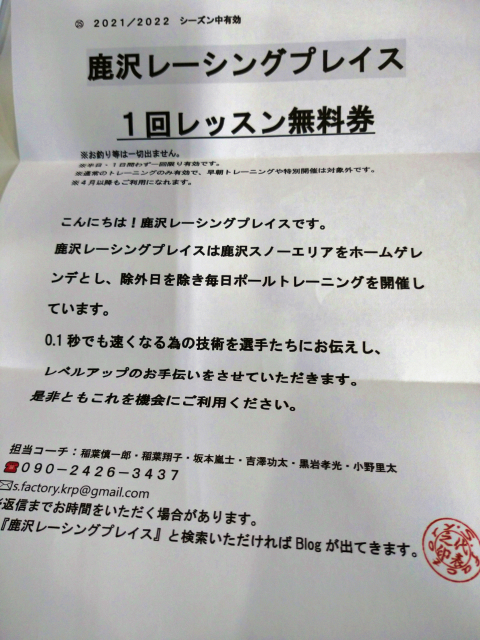 ㉕ 2021/2022 シーズン中有効
鹿沢レーシングプレイス
1回レッスン無料券
※お釣り等は一切出ません。
※半日・1日問わず一回限り有効です。
※通常のトレーニングのみ有効で、早朝トレーニングや特別開催は対象外です。
※4月以降もご利用になれます。
こんにちは！鹿沢レーシングプレイスです。
鹿沢レーシングプレイスは鹿沢スノーエリアをホームゲレ
ンデとし、除外日を除き毎日ポールトレーニングを開催し
ています。
0.1秒でも速くなる為の技術を選手たちにお伝えし、
レベルアップのお手伝いをさせていただきます。
是非ともこれを機会にご利用ください。
担当コーチ：稲葉慎一郎・稲葉翔子・坂本嵐士・吉澤功太・黒岩孝光・小野里太
☎090-2426-3437
✉s.factory.krp@gmail.com
返信までお時間をいただく場合があります。
『鹿沢レーシングプレイス』と検索いただければBlogが出てきます。